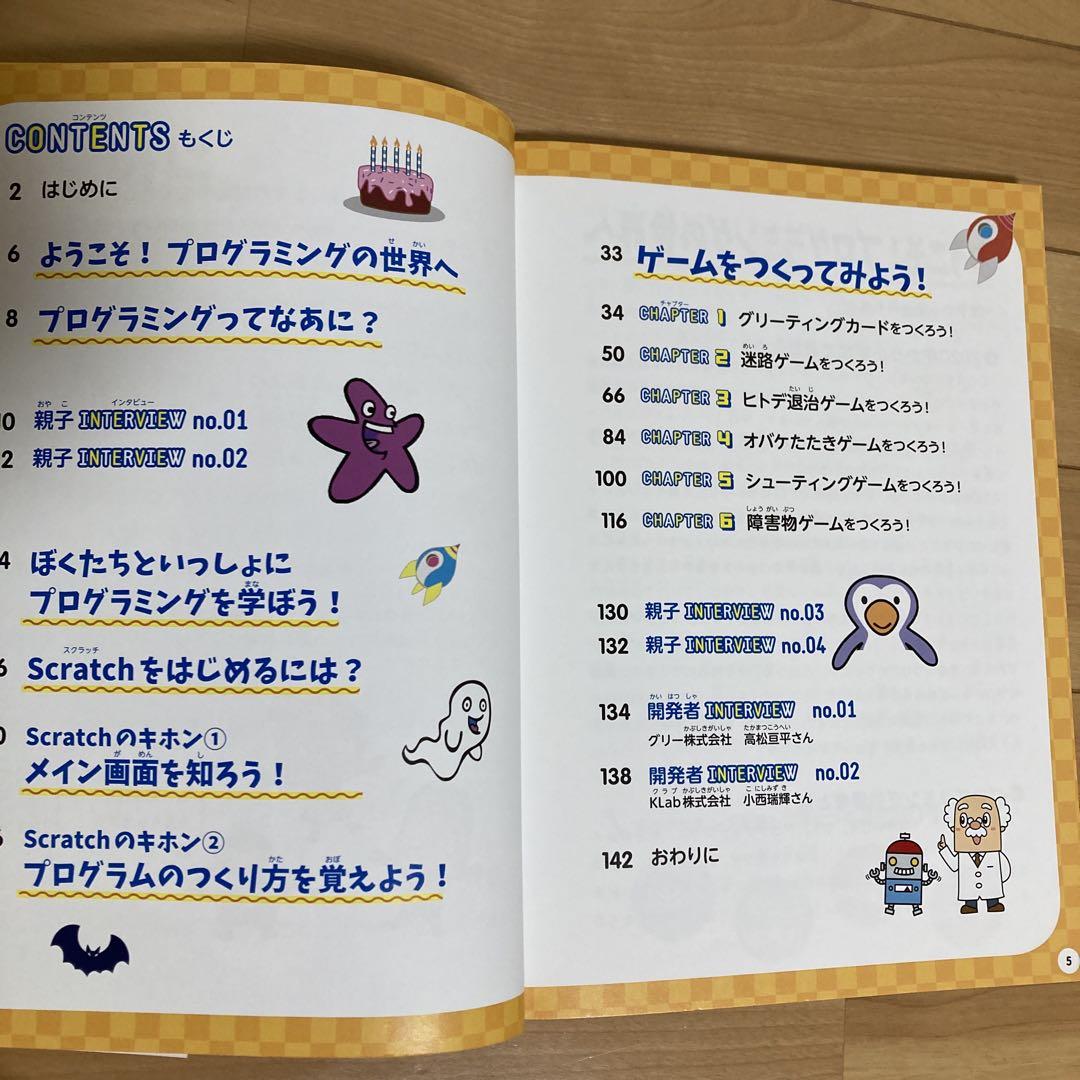 コンテンツ
CONTENTS もくじ
2 はじめに
せ かい
6 ようこそ！ プログラミングの世界へ
8 プログラミングってなあに？
おや こ インタビュー
親子 INTERVIEW no.01
親子 INTERVIEW no.02
ぼくたちといっしょに
まな
プログラミングを学ぼう！
スクラッチ
Scratchをはじめるには？
Scratchのキホン①
が めん し
メイン画面を知ろう！
Scratchのキホン②
かた おぼ
プログラムのつくり方を覚えよう！
33 ゲームをつくってみよう！
チャプター
34 CHAPTER 1 グリーティングカードをつくろう！
めい ろ
50 CHAPTER 2 迷路ゲームをつくろう！
たい じ
66 CHAPTER 3 ヒトデ退治ゲームをつくろう！
84 CHAPTER 4 オバケたたきゲームをつくろう！
100 CHAPTER 5 シューティングゲームをつくろう！
しょう がい ぶつ
116 CHAPTER 6 障害物ゲームをつくろう！
130 親子 INTERVIEW no.03
132 親子 INTERVIEW no.04
かい はつ しゃ
134 開発者 INTERVIEW no.01
かぶしきがいしゃ たかまつこうへい
グリー株式会社 高松亘平さん
138 開発者 INTERVIEW no.02
クラブ かぶしきがいしゃ こにしみずき
KLab株式会社 小西瑞輝さん
142 おわりに
5